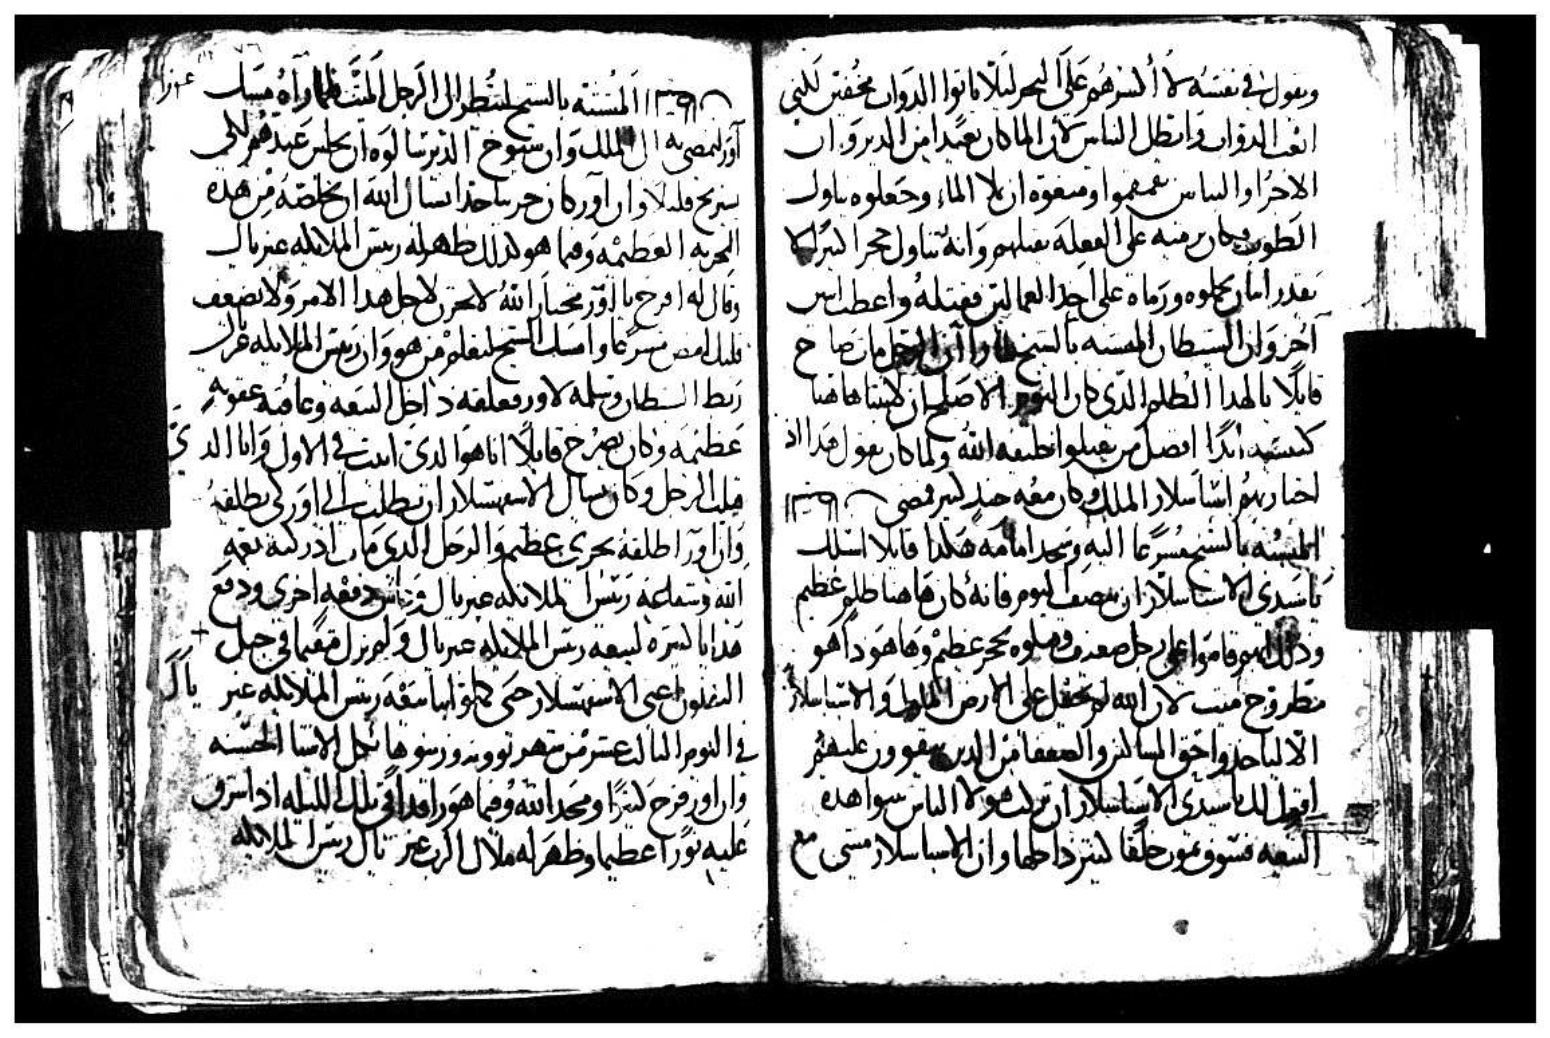 ويقول في نفسه لا أكسرهم على البحر ليلا ياتوا الدواب محفين لكي
اتعب الدواب وابطل الناس لان الما كان بعيدا من الدير وان
الاخرا والناس عمهموا ومنعوه ان يلا الماء وجعلوه يناول
الطوب وكان يرميه على الفعله بقتلهم وانه تناول حجرا كبيرا لا
يقدر اثنان يحملوه ورماه على احد العمالين فقتله واعطب اثنين
آخر وان الشيطان المتشبه بالشيخ لما راا ان الرجل مات صاح
قايلا يا لهذا الظلم الذي كان اليوم الاصلح ان لا يبنا هاهنا
كنيسه ابدا افضل من يقتلوا خليقه الله ولما كان يقول هذا اذ
اجتاز بهم اسباسلار الملك وكان معه جند كثير فمضى
المتشبه بالشيخ مسرعا اليه وسجد امامه هكذا قايلا اسلك
يا سيدي الاسباسلار ان تنصف اليوم فانه كان هاهنا ظلم عظيم
وذلك انهم قاموا على رجل ضعيف وقتلوه بحجر عظيم وها هو ذا هو
مطروح ميت لان الله لم يجعل على الارض الملوك والاسباسلار
الا لياخذوا حق المساكين والضعفا من الذين يتقوون عليهم
اقول لك يا سيدي الاسباسلار ان تركت هولاا الناس يبنوا هذه
البيعه فسوف يموت خلقا كثير داخلها وان الاسباسلار مشى مع
المتشبه بالشيخ لينظر الى الرجل الميت فلما رآه مسك
آور ليمضي به الى الملك وان شيوخ الدير سالوه ان يجلس عندهم لكي
يستريح قليلا وان آور كان حزينا جدا يسال الله ان يخلصه من هذه
التجربه العظيمه وفيما هو كذلك ظهر له رييس الملايكه غبريال
وقال له افرح يا آور مختار الله لا تحزن لاجل هذا الامر ولا تضعف
قلبك امض مسرعا وامسك الشيخ ليعلم من هو وان رييس الملايكه غبريال
ربط الشيطان وسلمه لاور فعلقه داخل البيعه وعاقبه عقوبه
عظيمه وكان يصرخ قايلا انا هو الذي اتيت في الاول وانا الذي
قتلت الرجل وكان يسال الاسفهسلار ان يطلب الى اور لكي يطلقه
وان اور اطلقه بخزي عظيم والرجل الذي مات ادركته نعمه
الله وشفاعه رييس الملايكه غبريال وعاش دفعه اخرى ودفع
هدايا كثيره لبيعه رييس الملايكه غبريال ولم يزل مقيما في جبل
النقلون اعني الاسفهسلار حتى كملوا بنا بيعه رييس الملايكه غبر يال
في اليوم الثالث عشر من شهر توونه ورسوها بكل الاشيا الحسنه
وان اور فرح كثيرا ومجد الله وفيما هو راقدا في تلك الليله اذ اشرق
عليه نورا عظيما وظهر له ملاك الرب غبر يال رييس الملايكه